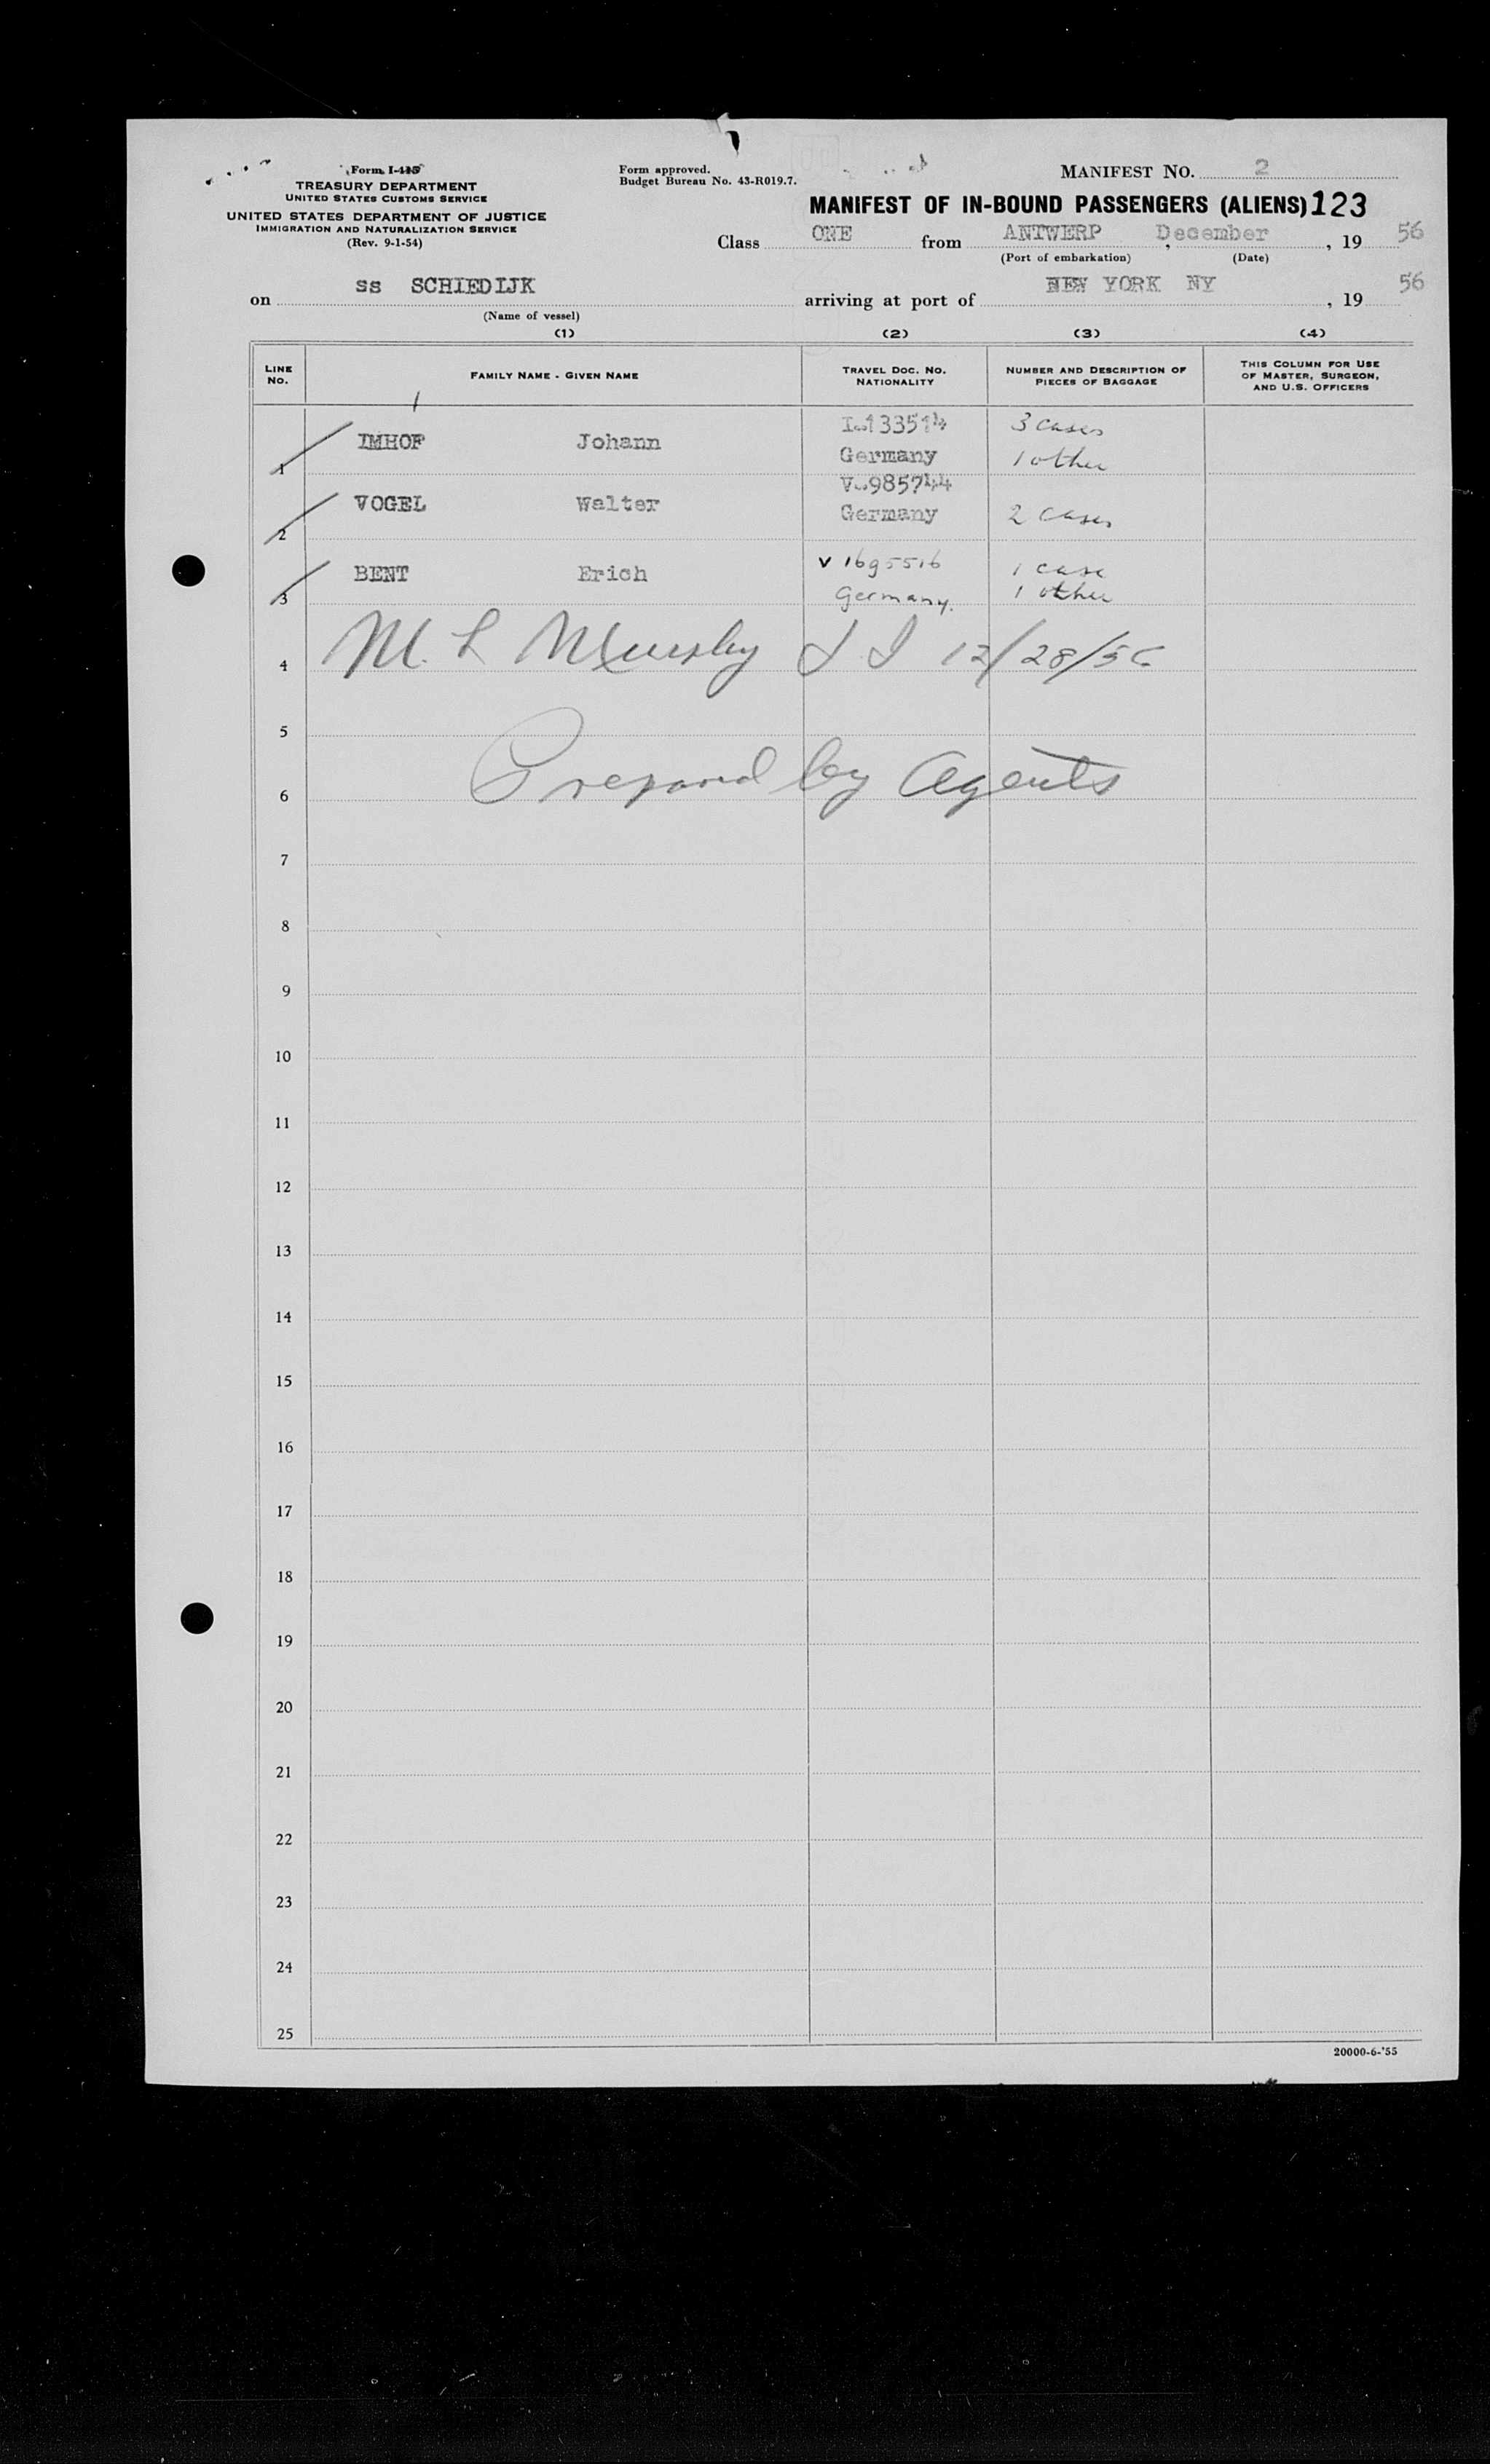 Form I-415
TREASURY DEPARTMENT
UNITED STATES CUSTOMS SERVICE
UNITED STATES DEPARTMENT OF JUSTICE
IMMIGRATION AND NATURALIZATION SERVICE
(Rev. 9-1-54)
Form approved.
Budget Bureau No. 43-R019.7.
MANIFEST NO. 2
MANIFEST OF IN-BOUND PASSENGERS (ALIENS) 123
Class ONE from ANTWERP, December, 19 56
(Port of embarkation) (Date)
on ss SCHIEDIJK arriving at port of NEW YORK NY, 19 56
(Name of vessel)
(1) (2) (3) (4)
LINE NO.
FAMILY NAME - GIVEN NAME
TRAVEL DOC. NO. NATIONALITY
NUMBER AND DESCRIPTION OF PIECES OF BAGGAGE
THIS COLUMN FOR USE OF MASTER, SURGEON, AND U.S. OFFICERS
1 IMHOF Johann I-133514 3 cases
Germany 1 other
2 VOGEL Walter V-985744
Germany 2 cases
3 BENT Erich V 1695516 1 case
Germany. 1 other
4 M. L 12/28/56
5
6 Prepared by Agents
7
8
9
10
11
12
13
14
15
16
17
18
19
20
21
22
23
24
25
20000-6-'55